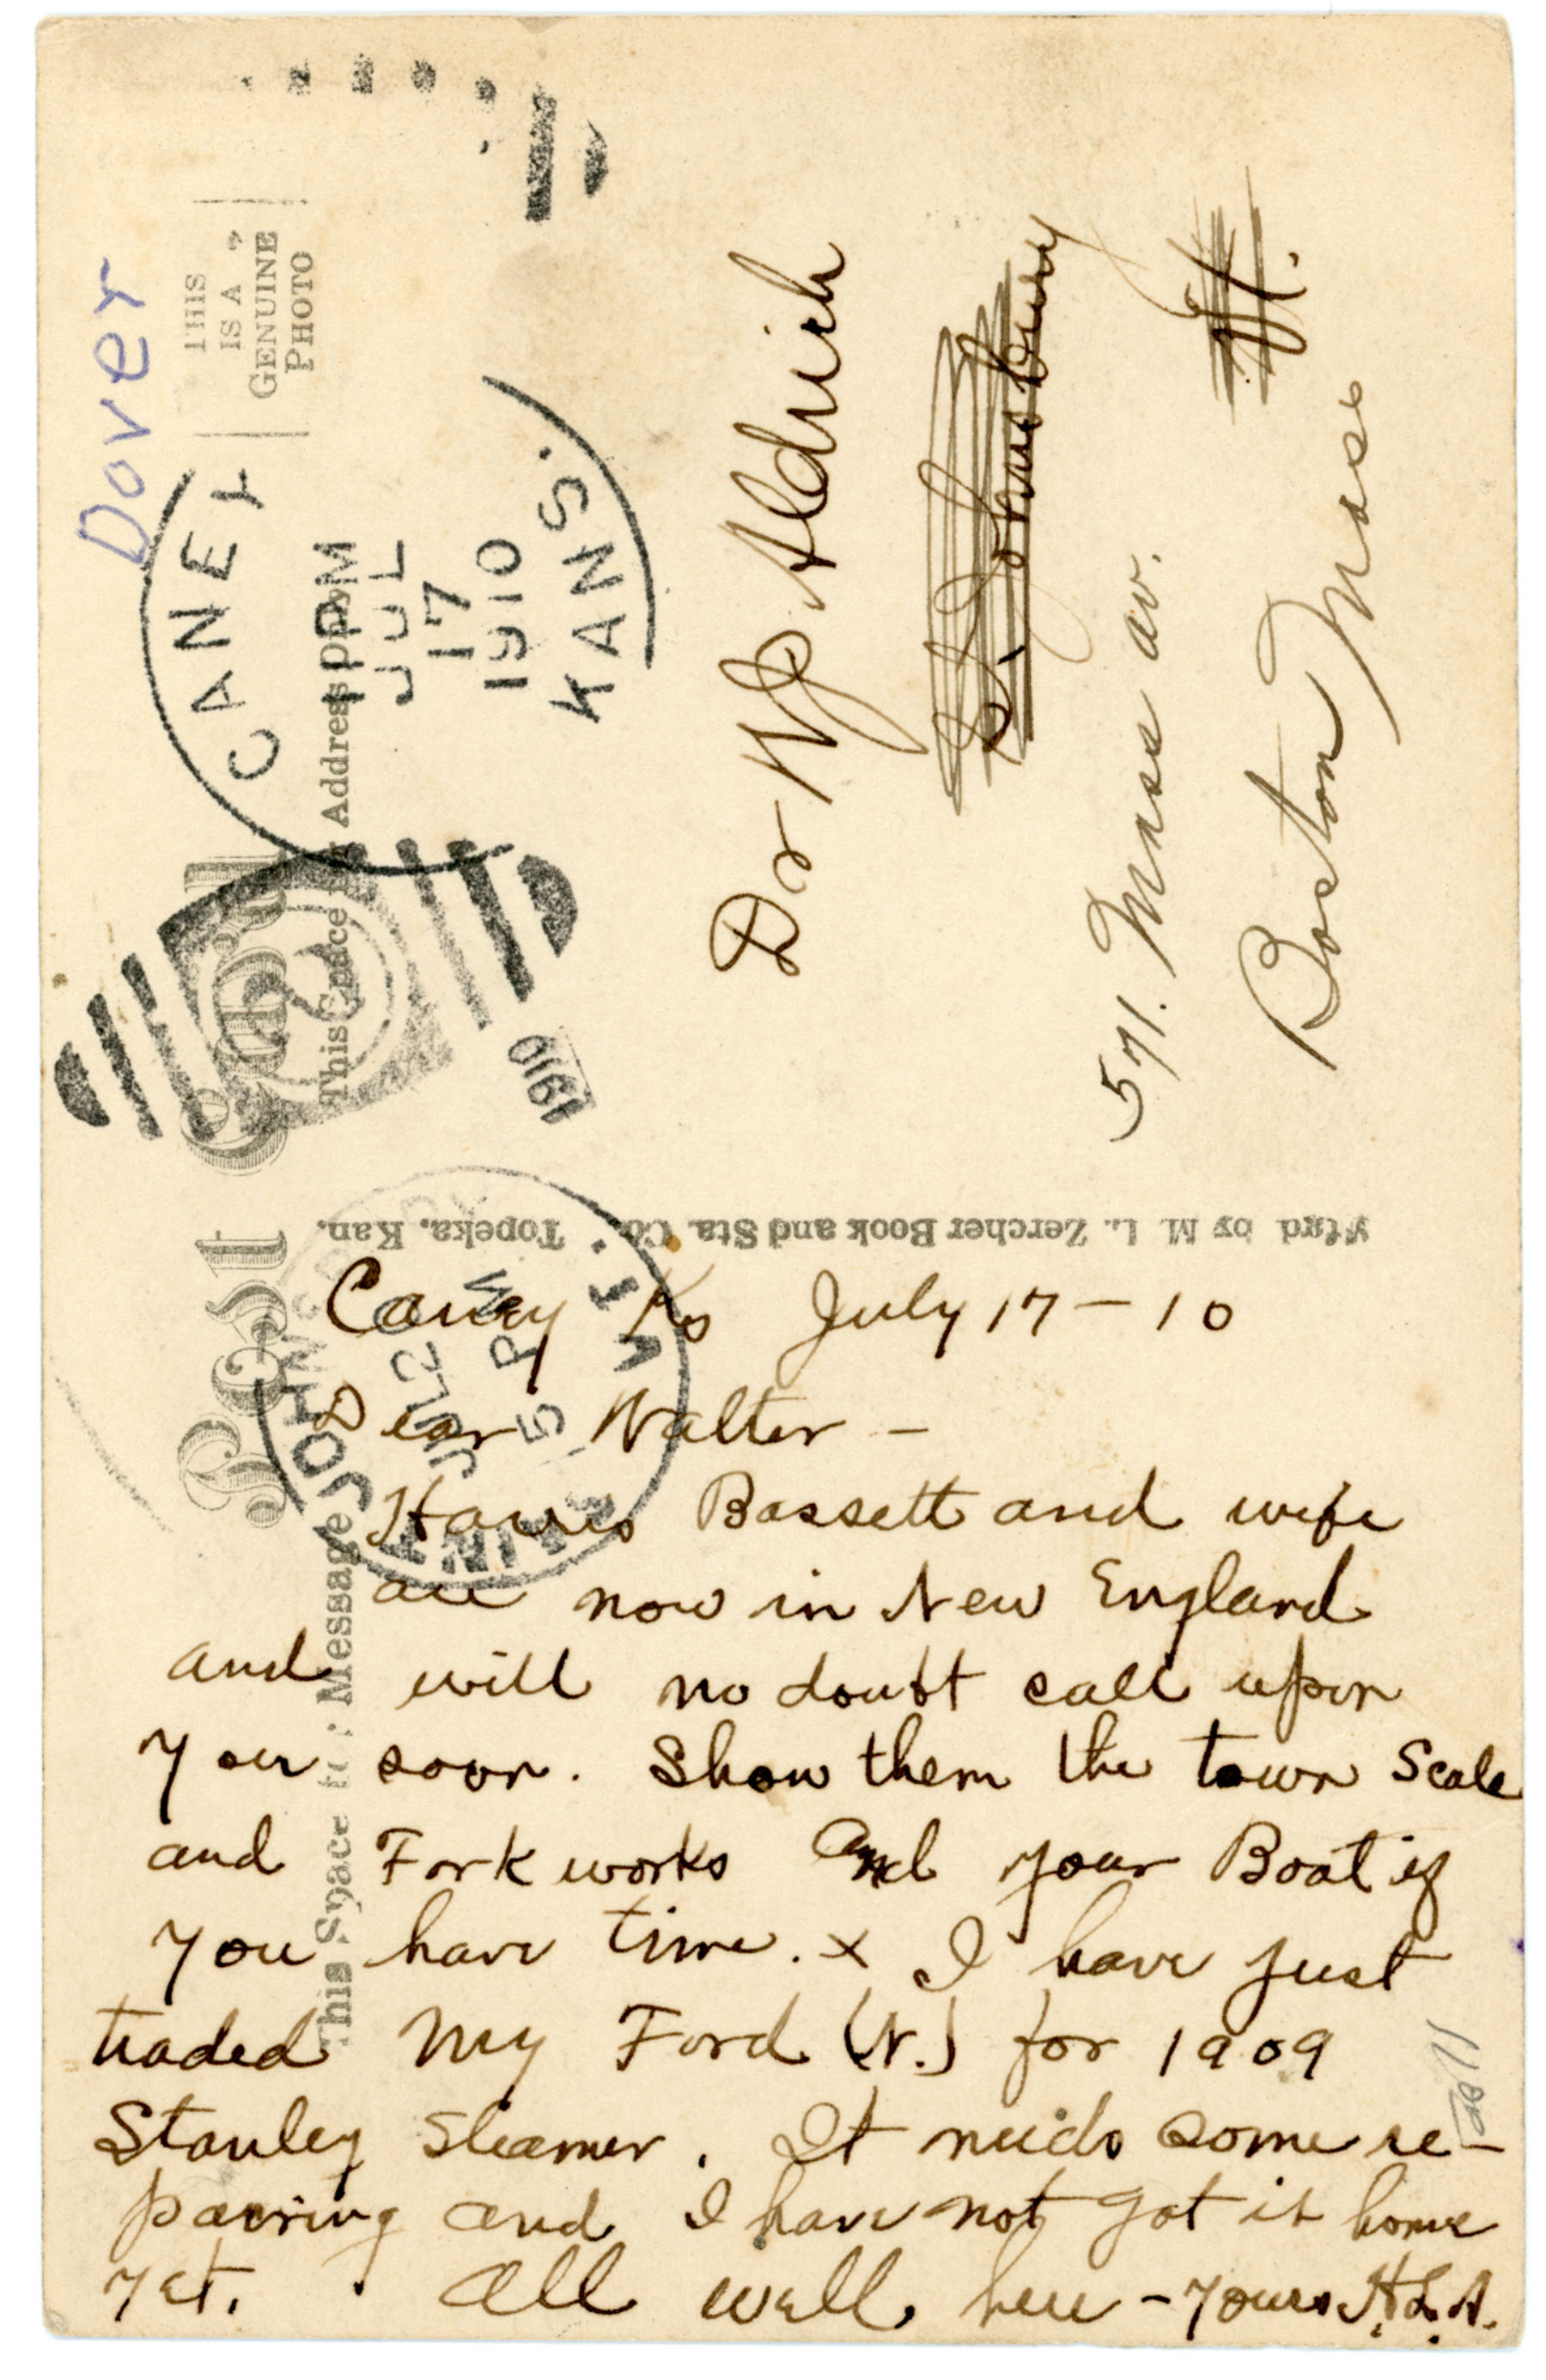 Dover
THIS
IS A
GENUINE
PHOTO
CANEY
KANS.
JUL
17
1910
1 PM
Post Card
This Space for Address Only
1910
Dr W J Aldrich
St Johnsbury
Vt.
571. Mass av.
Boston Mass
by M. L. Zercher Book and Sta. Co. Topeka, Kan.
This Space Message
JUL 2
5 PM
VT.
Caney Ks July 17 – 10
Dear Walter –
Harris Bassett and wife
are now in New England
and will no doubt call upon
you soon. Show them the town Scale
and Fork works and your Boat if
you have time. x I have just
traded My Ford (N.) for 1909
Stanley Steamer. It needs some re-
pairing and I have not got it home
yet. All well here – Yours H. L. A.